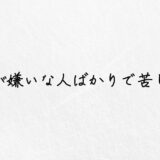 が嫌いな人ばかりで苦